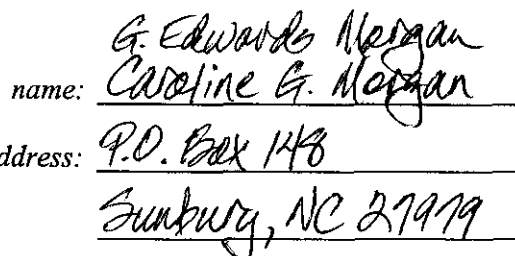 G. Edwards Morgan
name: Caroline G. Morgan
ddress: P.O. Box 148
Sunbury, NC 27979